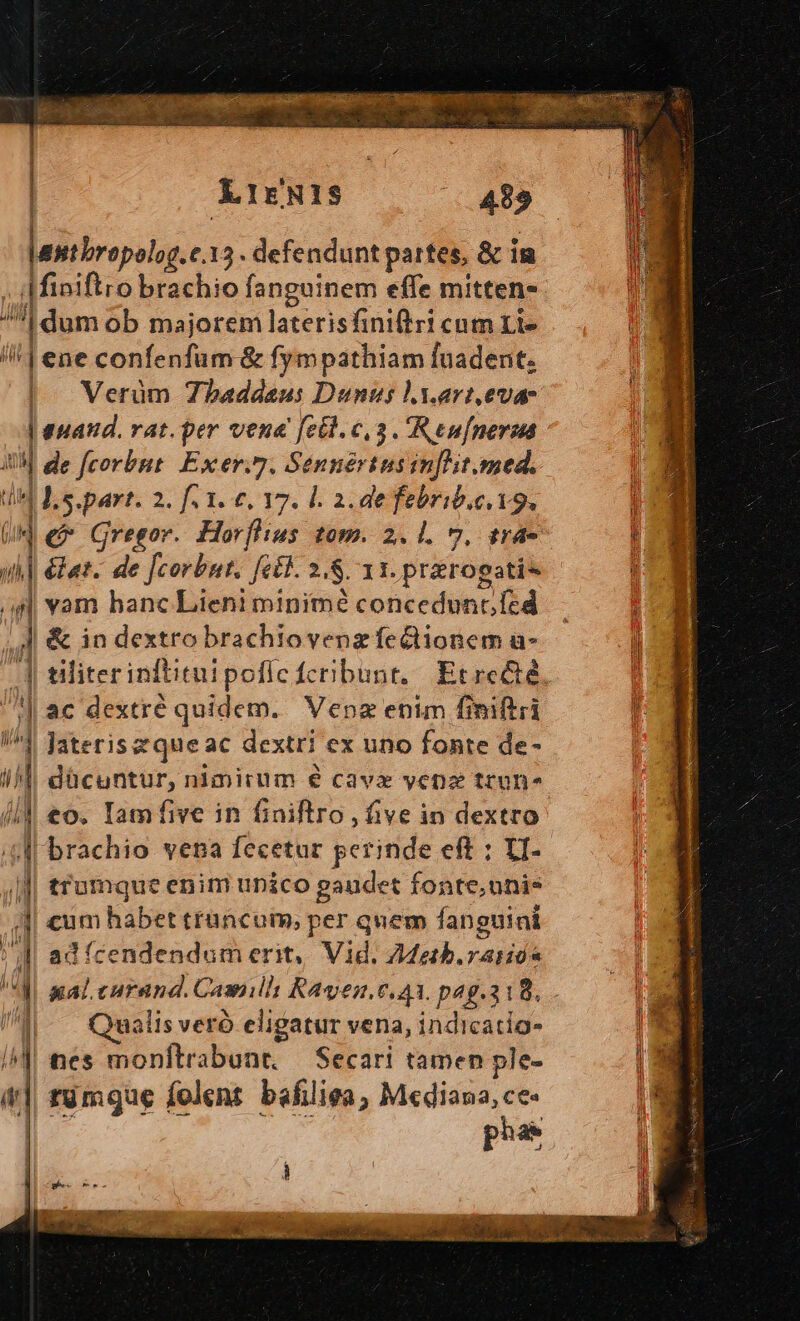 LIENIS 489
anthropolog.c.13. defendunt partes, & in
ſiniſtro brachio ſanguinem eſſe mitten-
dum ob majorem lateris ſiniſtri cum Li-
ene conſenſum & ſympathiam ſuadent.
Verùm Thaddæus Dunus l.1.art.eva-
cuand. rat. per venæ ſect.c.3. Reuſnerus
de ſcorbut. Exer.7. Sennertus inſtit.med.
l.5.part. 2. ſ. 1. c. 17. l. 2. de febrib.c.19.
& Gregor. Horſtius tom. 2. l. 7. tra-
ctat. de ſcorbut. ſect. 2.§. 11. prærogati-
vam hanc Lieni minimè concedunt, ſed
& in dextro brachio venæ ſectionem u-
tiliter inſtitui poſſe ſcribunt. Et rectè
ac dextrè quidem. Venæ enim ſiniſtri
lateris æque ac dextri ex uno fonte de-
ducuntur, nimirum è cavæ venæ trun-
co. Iam ſive in ſiniſtro, ſive in dextro
brachio vena ſecetur perinde eſt: U-
trumque enim unico gaudet fonte, uni-
cum habet truncum, per quem ſanguini
adſcendendum erit. Vid. Meth. ratio-
nal. curand. Camilli Raven.c.41. pag.318.
Qualis verò eligatur vena, indicatio-
nes monſtrabunt. Secari tamen ple-
rumque ſolent baſilica, Mediana, ce-
pha-